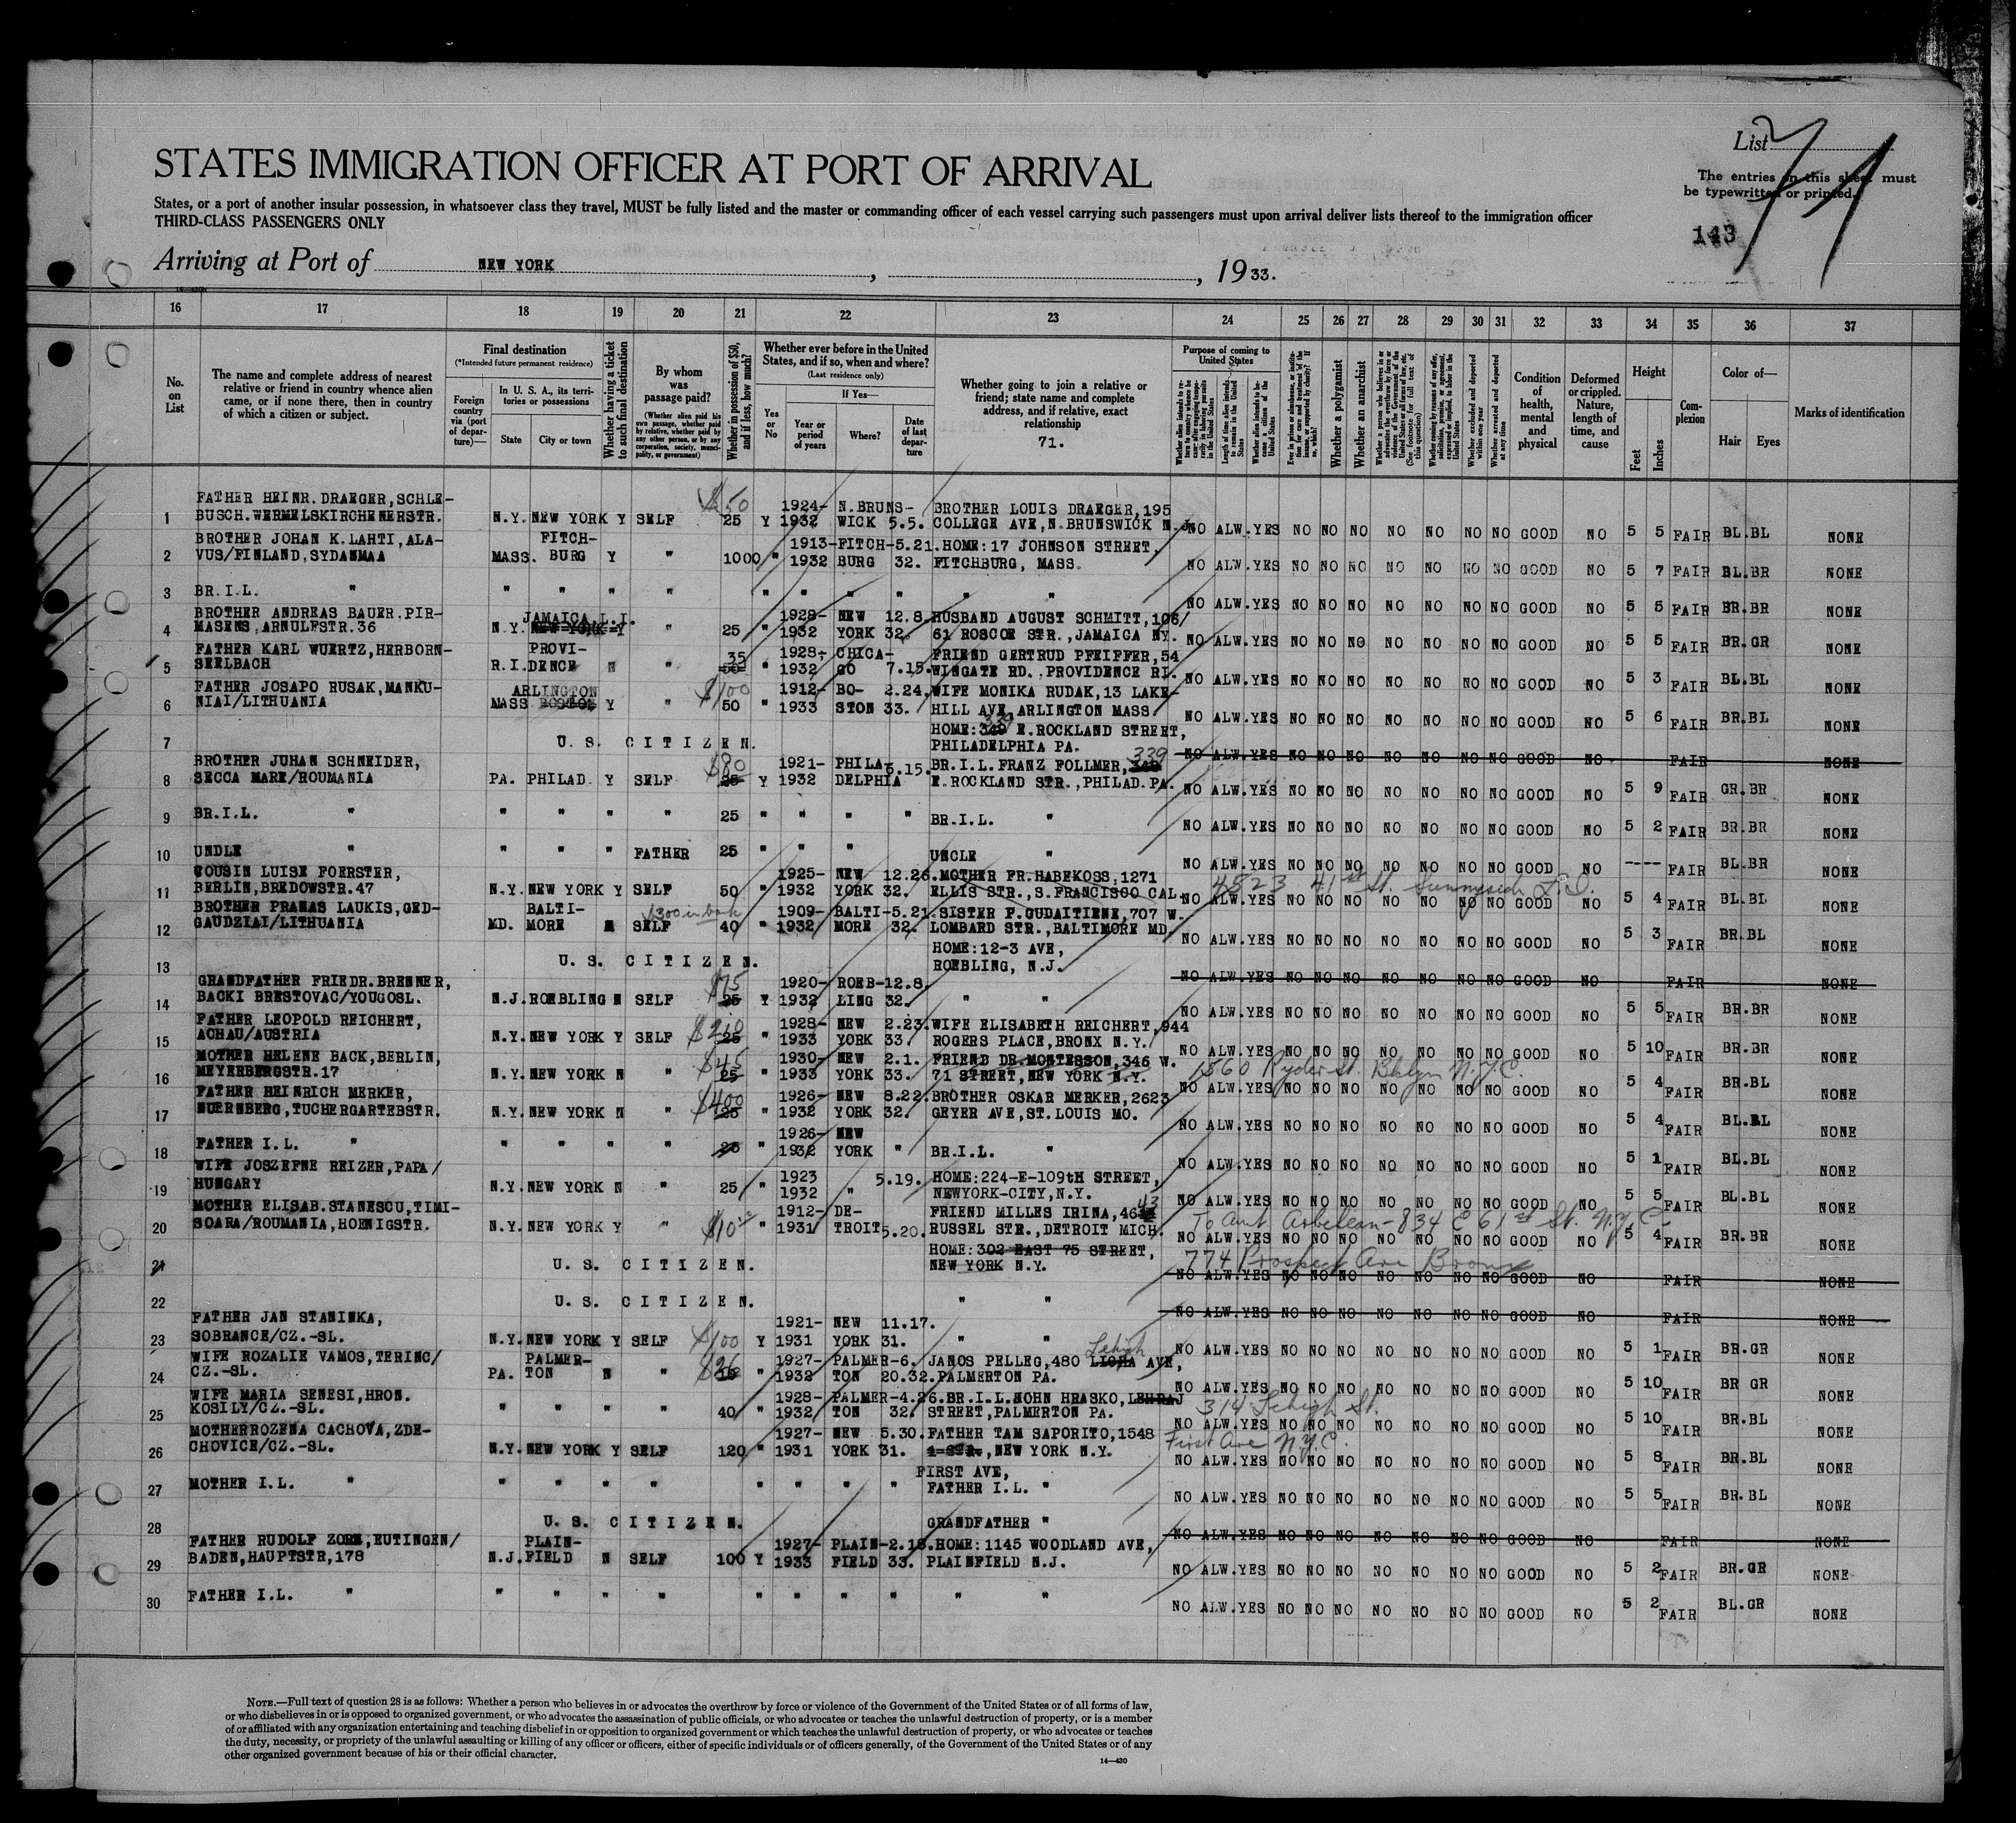 STATES IMMIGRATION OFFICER AT PORT OF ARRIVAL
List 71
The entries on this sheet must be typewritten or printed.
143
States, or a port of another insular possession, in whatsoever class they travel, MUST be fully listed and the master or commanding officer of each vessel carrying such passengers must upon arrival deliver lists thereof to the immigration officer
THIRD-CLASS PASSENGERS ONLY
Arriving at Port of NEW YORK, 1933.
16 17 18 19 20 21 22 23 24 25 26 27 28 29 30 31 32 33 34 35 36 37
No. on List
The name and complete address of nearest relative or friend in country whence alien came, or if none there, then in country of which a citizen or subject.
Final destination
(*Intended future permanent residence)
Foreign country via (port of departure)—
In U. S. A., its territories or possessions
State City or town
Whether having a ticket to such final destination
By whom was passage paid?
(Whether alien paid his own passage, whether paid by relative, whether paid by any other person, or by any corporation, society, municipality, or government)
Whether in possession of $50, and if less, how much?
Whether ever before in the United States, and if so, when and where?
(Last residence only)
Yes or No
If Yes—
Year or period of years
Where?
Date of last departure
Whether going to join a relative or friend; state name and complete address, and if relative, exact relationship
71.
Purpose of coming to United States
Length of time alien intends to remain in the United States
Whether alien intends to become a citizen of the United States
Whether a polygamist
Whether an anarchist
(See footnote for full text of this question)
Whether excluded and deported within one year
Whether arrested and deported at any time
Condition of health, mental and physical
Deformed or crippled. Nature, length of time, and cause
Height
Feet Inches
Complexion
Color of—
Hair Eyes
Marks of identification
1 FATHER HEINR. DRAEGER, SCHLE-BUSCH. WERMELSKIRCHENERSTR. N.Y. NEW YORK Y SELF $50 25 Y 1924-1932 N.BRUNS-WICK 5.5. BROTHER LOUIS DRAEGER, 195 COLLEGE AVE, N. BRUNSWICK N.J. NO ALW. YES NO NO NO NO NO NO NO GOOD NO 5 5 FAIR BL. BL NONE
2 BROTHER JOHAN K. LAHTI, ALA-VUS/FINLAND, SYDANMAA MASS. FITCH-BURG Y " 1000 " 1913-1932 FITCH-BURG 5.21.32. HOME: 17 JOHNSON STREET, FITCHBURG, MASS. NO ALW. YES NO NO NO NO NO NO NO GOOD NO 5 7 FAIR BL. BR NONE
3 BR. I.L. " " " " " " " " " " " NO ALW. YES NO NO NO NO NO NO NO GOOD NO 5 5 FAIR BR. BR NONE
4 BROTHER ANDREAS BAUER. PIR-MASENS, ARNULFSTR. 36 N.Y. JAMAICA L.I. NEW YORK Y " 25 " 1928-1932 NEW YORK 12.8.32. HUSBAND AUGUST SCHMITT, 106/61 ROSCOE STR., JAMAICA NY. NO ALW. YES NO NO NO NO NO NO NO GOOD NO 5 5 FAIR BR. GR NONE
5 FATHER KARL WUERTZ, HERBORN-SEELBACH R.I. PROVI-DENCE N " 35 50 " 1928-1932 CHICA-GO 7.15. FRIEND GERTRUD PFEIFFER, 54 WINGATE RD. PROVIDENCE RI. NO ALW. YES NO NO NO NO NO NO NO GOOD NO 5 3 FAIR BL. BL NONE
6 FATHER JOSAPO RUSAK, MANKU-NIAI/LITHUANIA MASS ARLINGTON BOSTON Y $100 50 " 1912-1933 BO-STON 2.24.33. WIFE MONIKA RUDAK, 13 LAKE-HILL AVE, ARLINGTON MASS. NO ALW. YES NO NO NO NO NO NO NO GOOD NO 5 6 FAIR BR. BL NONE
7 U. S. CITIZEN. HOME: 349 339 E. ROCKLAND STREET, PHILADELPHIA PA. NO ALW. YES NO NO NO NO NO NO NO GOOD NO FAIR NONE
8 BROTHER JUHAN SCHNEIDER, SECCA MARE/ROUMANIA PA. PHILAD. Y SELF $80 25 Y 1921-1932 PHILA-DELPHIA 5.15. BR. I.L. FRANZ FOLLMER, 349 339 E. ROCKLAND STR., PHILAD. PA. NO ALW. YES NO NO NO NO NO NO NO GOOD NO 5 9 FAIR GR. BR NONE
9 BR. I.L. " " " " " 25 " " " " BR. I.L. " NO ALW. YES NO NO NO NO NO NO NO GOOD NO 5 2 FAIR BR. BR NONE
10 UNDLE " " " " FATHER 25 " " " UNCLE " NO ALW. YES NO NO NO NO NO NO NO GOOD NO ---- FAIR BL. BR NONE
11 COUSIN LUISE FOERSTER, BERLIN, BREDOWSTR. 47 N.Y. NEW YORK Y SELF 50 " 1925-1932 NEW YORK 12.26.32. MOTHER FR. HABEKOSS, 1271 ELLIS STR., S. FRANCISCO CAL. 4523 41st St. Sunnyside L.I. NO ALW. YES NO NO NO NO NO NO NO GOOD NO 5 4 FAIR BL. BL NONE
12 BROTHER PRANAS LAUKIS, GED-GAUDZIAI/LITHUANIA MD. BALTI-MORE N SELF $300 in bank 40 " 1909-1932 BALTI-MORE 5.21.32. SISTER F. GUDAITIENE, 707 W. LOMBARD STR., BALTIMORE MD. NO ALW. YES NO NO NO NO NO NO NO GOOD NO 5 3 FAIR BR. BL NONE
13 U. S. CITIZEN. HOME: 12-3 AVE, ROEBLING, N.J. NO ALW. YES NO NO NO NO NO NO NO GOOD NO FAIR NONE
14 GRANDFATHER FRIEDR. BRENNER, BACKI BRESTOVAC/YOUGOSL. N.J. ROEBLING N SELF $75 25 Y 1920-1932 ROEB-LING 12.8.32. " " NO ALW. YES NO NO NO NO NO NO NO GOOD NO 5 5 FAIR BR. BR NONE
15 FATHER LEOPOLD REICHERT, ACHAU/AUSTRIA N.Y. NEW YORK Y SELF $210 25 " 1928-1933 NEW YORK 2.23.33 WIFE ELISABETH REICHERT, 944 ROGERS PLACE, BRONX N.Y. NO ALW. YES NO NO NO NO NO NO NO GOOD NO 5 10 FAIR BR. BR NONE
16 MOTHER HELENE BACK, BERLIN, MEYERBERGSTR. 17 N.Y. NEW YORK N $45 25 " 1930-1933 NEW YORK 2.1.33. FRIEND DR. MONTESSON, 346 W. 71 STREET, NEW YORK N.Y. 1560 Ryder St. Bklyn N.Y.C. NO ALW. YES NO NO NO NO NO NO NO GOOD NO 5 4 FAIR BR. BL NONE
17 FATHER HEINRICH MERKER, NUERNBERG, TUCHERGARTEBSTR. N.Y. NEW YORK N " $400 25 " 1926-1932 NEW YORK 8.22.32. BROTHER OSKAR MERKER, 2623 GEYER AVE, ST. LOUIS MO. NO ALW. YES NO NO NO NO NO NO NO GOOD NO 5 4 FAIR BL. BL NONE
18 FATHER I.L. " " " " " 25 " 1926-1932 NEW YORK " BR. I.L. " NO ALW. YES NO NO NO NO NO NO NO GOOD NO 5 1 FAIR BL. BL NONE
19 WIFE JOSZEFNE REIZER, PAPA/HUNGARY N.Y. NEW YORK N " 25 " 1923 1932 " 5.19. HOME: 224-E-109tH STREET, NEWYORK-CITY, N.Y. NO ALW. YES NO NO NO NO NO NO NO GOOD NO 5 5 FAIR BL. BL NONE
20 MOTHER ELISAB. STANESCU, TIMI-SOARA/ROUMANIA, HOENIGSTR. N.Y. NEW YORK Y " $10 " 1912-1931 DE-TROIT 5.20. FRIEND MILLES IRINA, 4643 RUSSEL STR., DETROIT MICH. To Aunt Arbelean-834 E 61st St. N.Y.C. NO ALW. YES NO NO NO NO NO NO NO GOOD NO 5 4 FAIR BR. BR NONE
21 U. S. CITIZEN. HOME: 302 EAST 75 STREET, NEW YORK N.Y. 774 Prospect Ave Bronx NO ALW. YES NO NO NO NO NO NO NO GOOD NO FAIR NONE
22 U. S. CITIZEN. " " NO ALW. YES NO NO NO NO NO NO NO GOOD NO FAIR NONE
23 FATHER JAN STANINKA, SOBRANCE/CZ.-SL. N.Y. NEW YORK Y SELF $100 Y 1921-1931 NEW YORK 11.17.31. " " NO ALW. YES NO NO NO NO NO NO NO GOOD NO 5 1 FAIR BR. GR NONE
24 WIFE ROZALIE VAMOS, TERINC/CZ.-SL. PA. PALMER-TON N " $26 15 " 1927-1932 PALMER-TON 6.20.32. JANOS PELLEG, 480 LIGHA Lehigh AVE, PALMERTON PA. NO ALW. YES NO NO NO NO NO NO NO GOOD NO 5 10 FAIR BR GR NONE
25 WIFE MARIA SENESI, HRON. KOSILY/CZ.-SL. " " " " 40 " 1928-1932 PALMER-TON 4.26.32. BR. I.L. JOHN HRASKO, LEHRAJ STREET, PALMERTON PA. 314 Lehigh St. NO ALW. YES NO NO NO NO NO NO NO GOOD NO 5 10 FAIR BR. BL NONE
26 MOTHERROZENA CACHOVA, ZDE-CHOVICE/CZ.-SL. N.Y. NEW YORK Y SELF 120 " 1927-1931 NEW YORK 5.30.31. FATHER TAM SAPORITO, 1548 1-STR., NEW YORK N.Y. First Ave N.Y.C. NO ALW. YES NO NO NO NO NO NO NO GOOD NO 5 8 FAIR BR. BL NONE
27 MOTHER I.L. " " " " " " " " " FIRST AVE, FATHER I.L. " NO ALW. YES NO NO NO NO NO NO NO GOOD NO 5 5 FAIR BR. BL NONE
28 U. S. CITIZEN. GRANDFATHER " NO ALW. YES NO NO NO NO NO NO NO GOOD NO FAIR NONE
29 FATHER RUDOLF ZORN, EUTINGEN/BADEN, HAUPTSTR, 178 N.J. PLAIN-FIELD N SELF 100 Y 1927-1933 PLAIN-FIELD 2.18.33. HOME: 1145 WOODLAND AVE, PLAINFIELD N.J. NO ALW. YES NO NO NO NO NO NO NO GOOD NO 5 2 FAIR BR. GR NONE
30 FATHER I.L. " " " " " " " " " " " NO ALW. YES NO NO NO NO NO NO NO GOOD NO 5 2 FAIR BL. GR NONE
NOTE.—Full text of question 28 is as follows: Whether a person who believes in or advocates the overthrow by force or violence of the Government of the United States or of all forms of law,
or who disbelieves in or is opposed to organized government, or who advocates the assassination of public officials, or who advocates or teaches the unlawful destruction of property, or is a member
of or affiliated with any organization entertaining and teaching disbelief in or opposition to organized government or which teaches the unlawful destruction of property, or who advocates or teaches
the duty, necessity, or propriety of the unlawful assaulting or killing of any officer or officers, either of specific individuals or of officers generally, of the Government of the United States or of any
other organized government because of his or their official character.
14—430